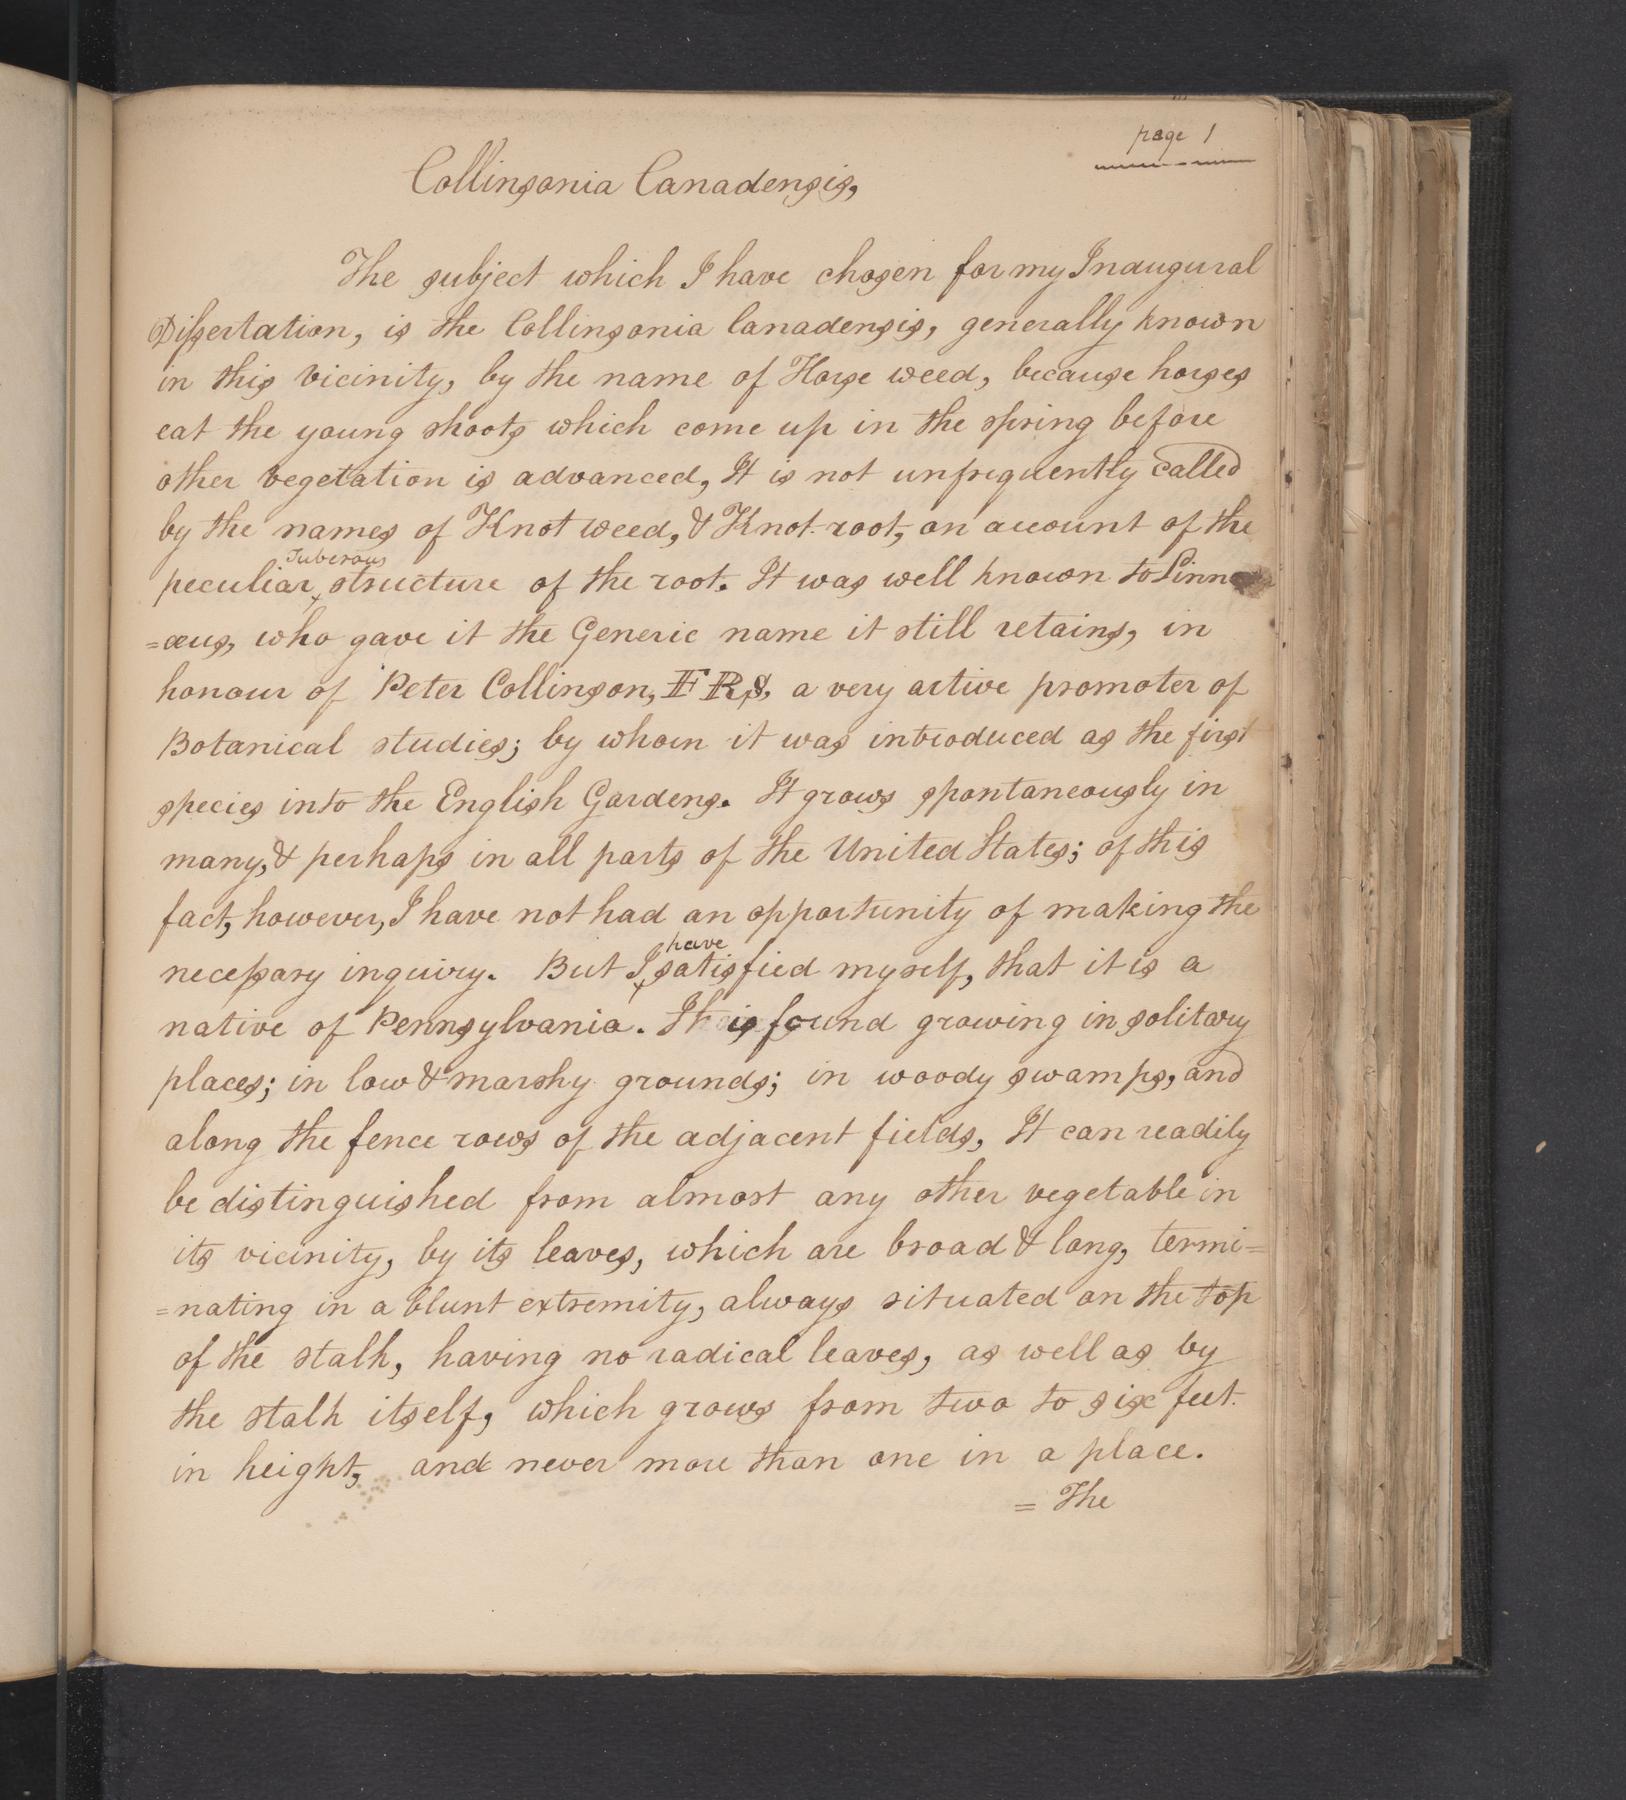 page 1
Collinsonia Canadensis,
The subject which I have chosen for my Inaugural
Dissertation, is the Collinsonia Canadensis, generally known
in this vicinity, by the name of Horse weed, because horses
eat the young shoots which come up in the spring before
other vegetation is advanced, It is not unfrequently called
by the names of Knot weed, & Knot-root, on account of the
Tuberous
peculiar structure of the root. It was well known to Linn
=æus, who gave it the Generic name it still retains, in
honour of Peter Collinson, FRS, a very active promoter of
Botanical studies; by whom it was introduced as the first
species into the English Gardens. It grows spontaneously in
many, & perhaps in all parts of the United States; of this
fact, however, I have not had an opportunity of making the
have
necessary inquiry. But I satisfied myself, that it is a
native of Pennsylvania. It is found growing in solitary
places; in low & marshy grounds; in woody swamps, and
along the fence rows of the adjacent fields, It can readily
be distinguished from almost any other vegetable in
its vicinity, by its leaves, which are broad & long, termi=
=nating in a blunt extremity, always situated on the top
of the stalk, having no radical leaves, as well as by
the stalk itself, which grows from two to six feet
in height, and never more than one in a place.
= The